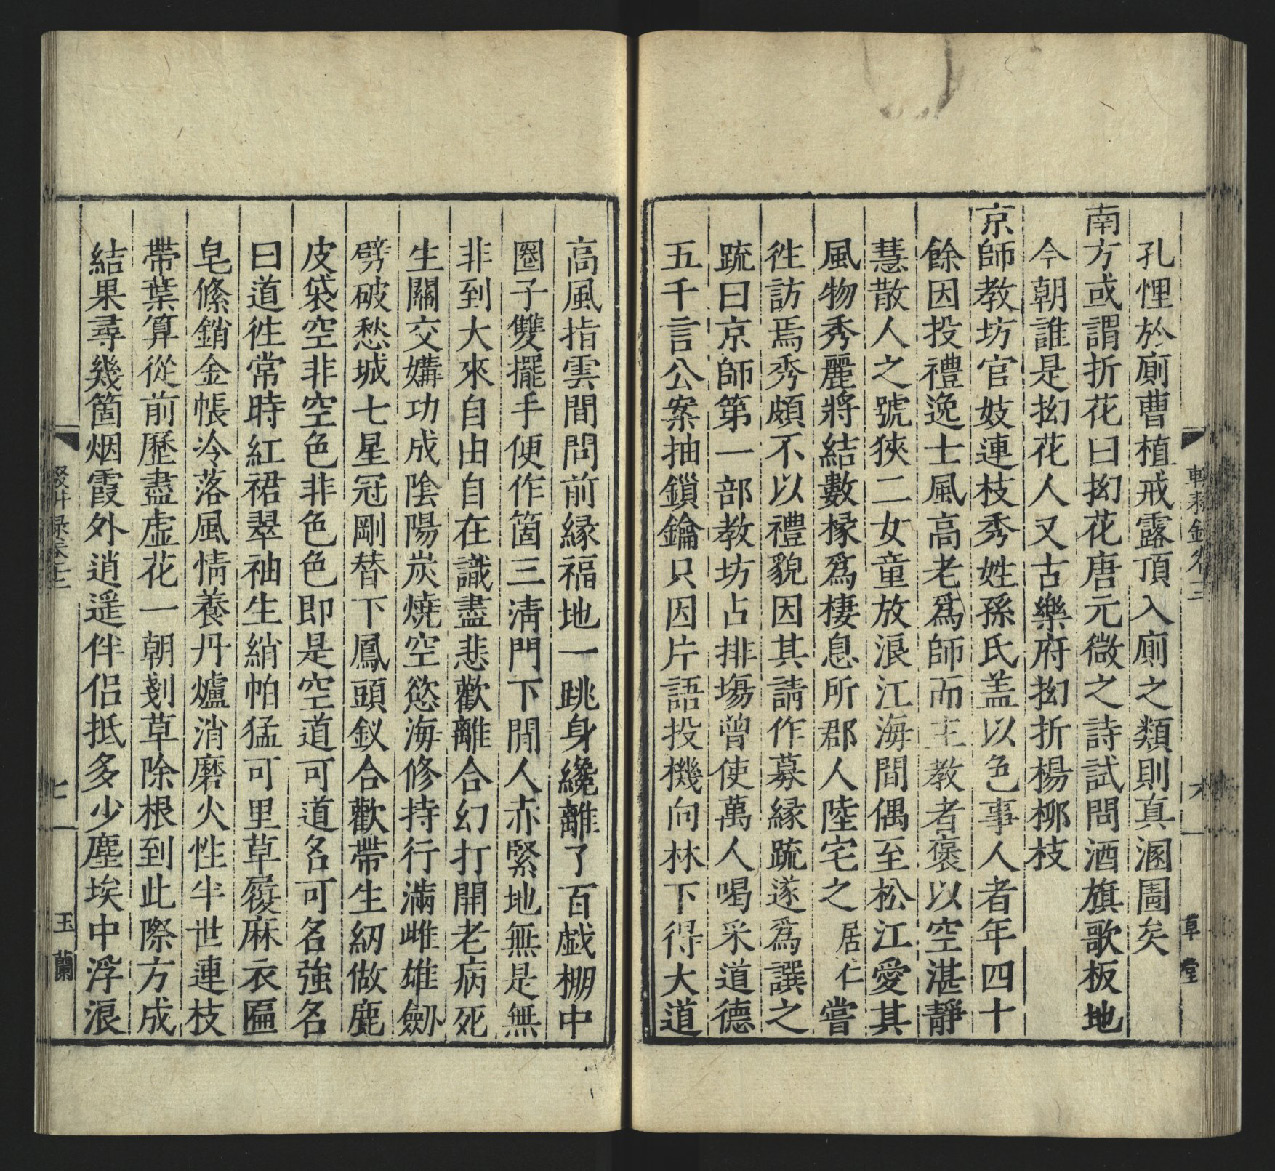 孔悝於廁曹植戒露頂入廁之類則真溷圊矣
南方或謂折花曰拗花唐元微之詩試問酒旗歌板地
今朝誰是拗花人又古樂府拗折楊柳枝
京師教坊官妓連枝秀姓孫氏盖以色事人者年四十
餘因投禮逸士風高老爲師而主教者褒以空湛靜
慧散人之號狹二女童放浪江海間偶至松江愛其
風物秀麗將結數椽爲棲息所郡人陸宅之居仁嘗
徃訪焉秀頗不以禮貌因其請作募緣疏遂爲譔之
疏曰京師第一部教坊占排塲曾使萬人喝采道德
五千言公案抽鎖鑰只因片語投機向林下得大道
高風指雲間問前緣福地一跳身纔離了百戲棚中
圈子雙擺手便作箇三清門下閒人赤緊地無是無
非到大來自由自在識盡悲歡離合幻打開老病死
生關交媾功成陰陽炭燒空慾海修持行滿雌雄劒
劈破愁城七星冠剛替下鳳頭釵合歡帶生紉做鹿
皮袋空非空色非色色即是空道可道名可名強名
曰道徃常時紅裙翠袖生綃帕猛可里草履麻衣匾
皂絛銷金帳冷落風情養丹爐消磨火性半世連枝
帶葉算從前歷盡虛花一朝剗草除根到此際方成
結果尋幾箇烟霞外逍遥伴侣抵多少塵埃中浮浪
七
玉蘭
草堂